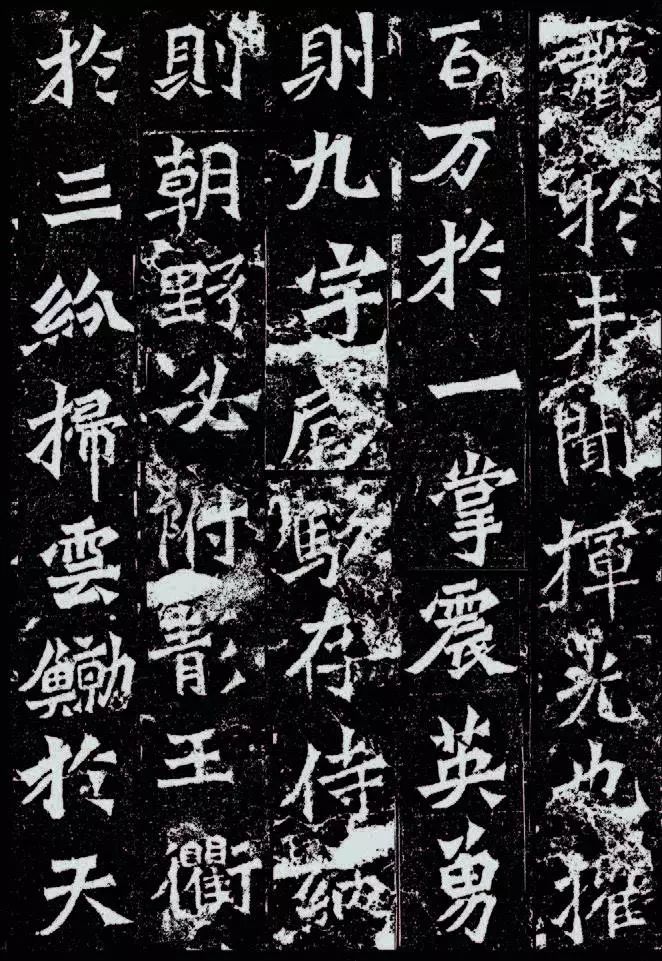 聲於未聞揮光也摧
百万於一掌震英勇
則九宇咸駭存侍納
則朝野必附清王衢
於三紛掃雲鯨於天